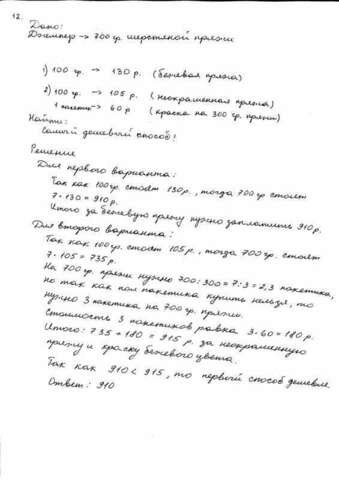 12.
Дано:
Джемпер → 700 гр. шерстяной пряжи
1) 100 гр. → 130 р. (бежевая пряжа)
2) 100 гр. → 105 р. (неокрашенная пряжа)
1 пакетик → 60 р (краска на 300 гр. пряжи)
Найти:
Самый дешевый способ!
Решение
Для первого варианта:
Так как 100 гр. стоят 130 р., тогда 700 гр стоят
7 · 130 = 910 р.
Итого за бежевую пряжу нужно заплатить 910 р.
Для второго варианта:
Так как 100 гр. стоят 105 р., тогда 700 гр. стоят
7 · 105 = 735 р.
На 700 гр. пряжи нужно 700 : 300 = 7 : 3 = 2,3 пакетика,
но так как пол пакетика купить нельзя, то
нужно 3 пакетика на 700 гр. пряжи.
Стоимость 3 пакетиков равна 3 · 60 = 180 р.
Итого: 735 + 180 = 915 р. за неокрашенную
пряжу и краску бежевого цвета.
Так как 910 < 915, то первый способ дешевле.
Ответ: 910